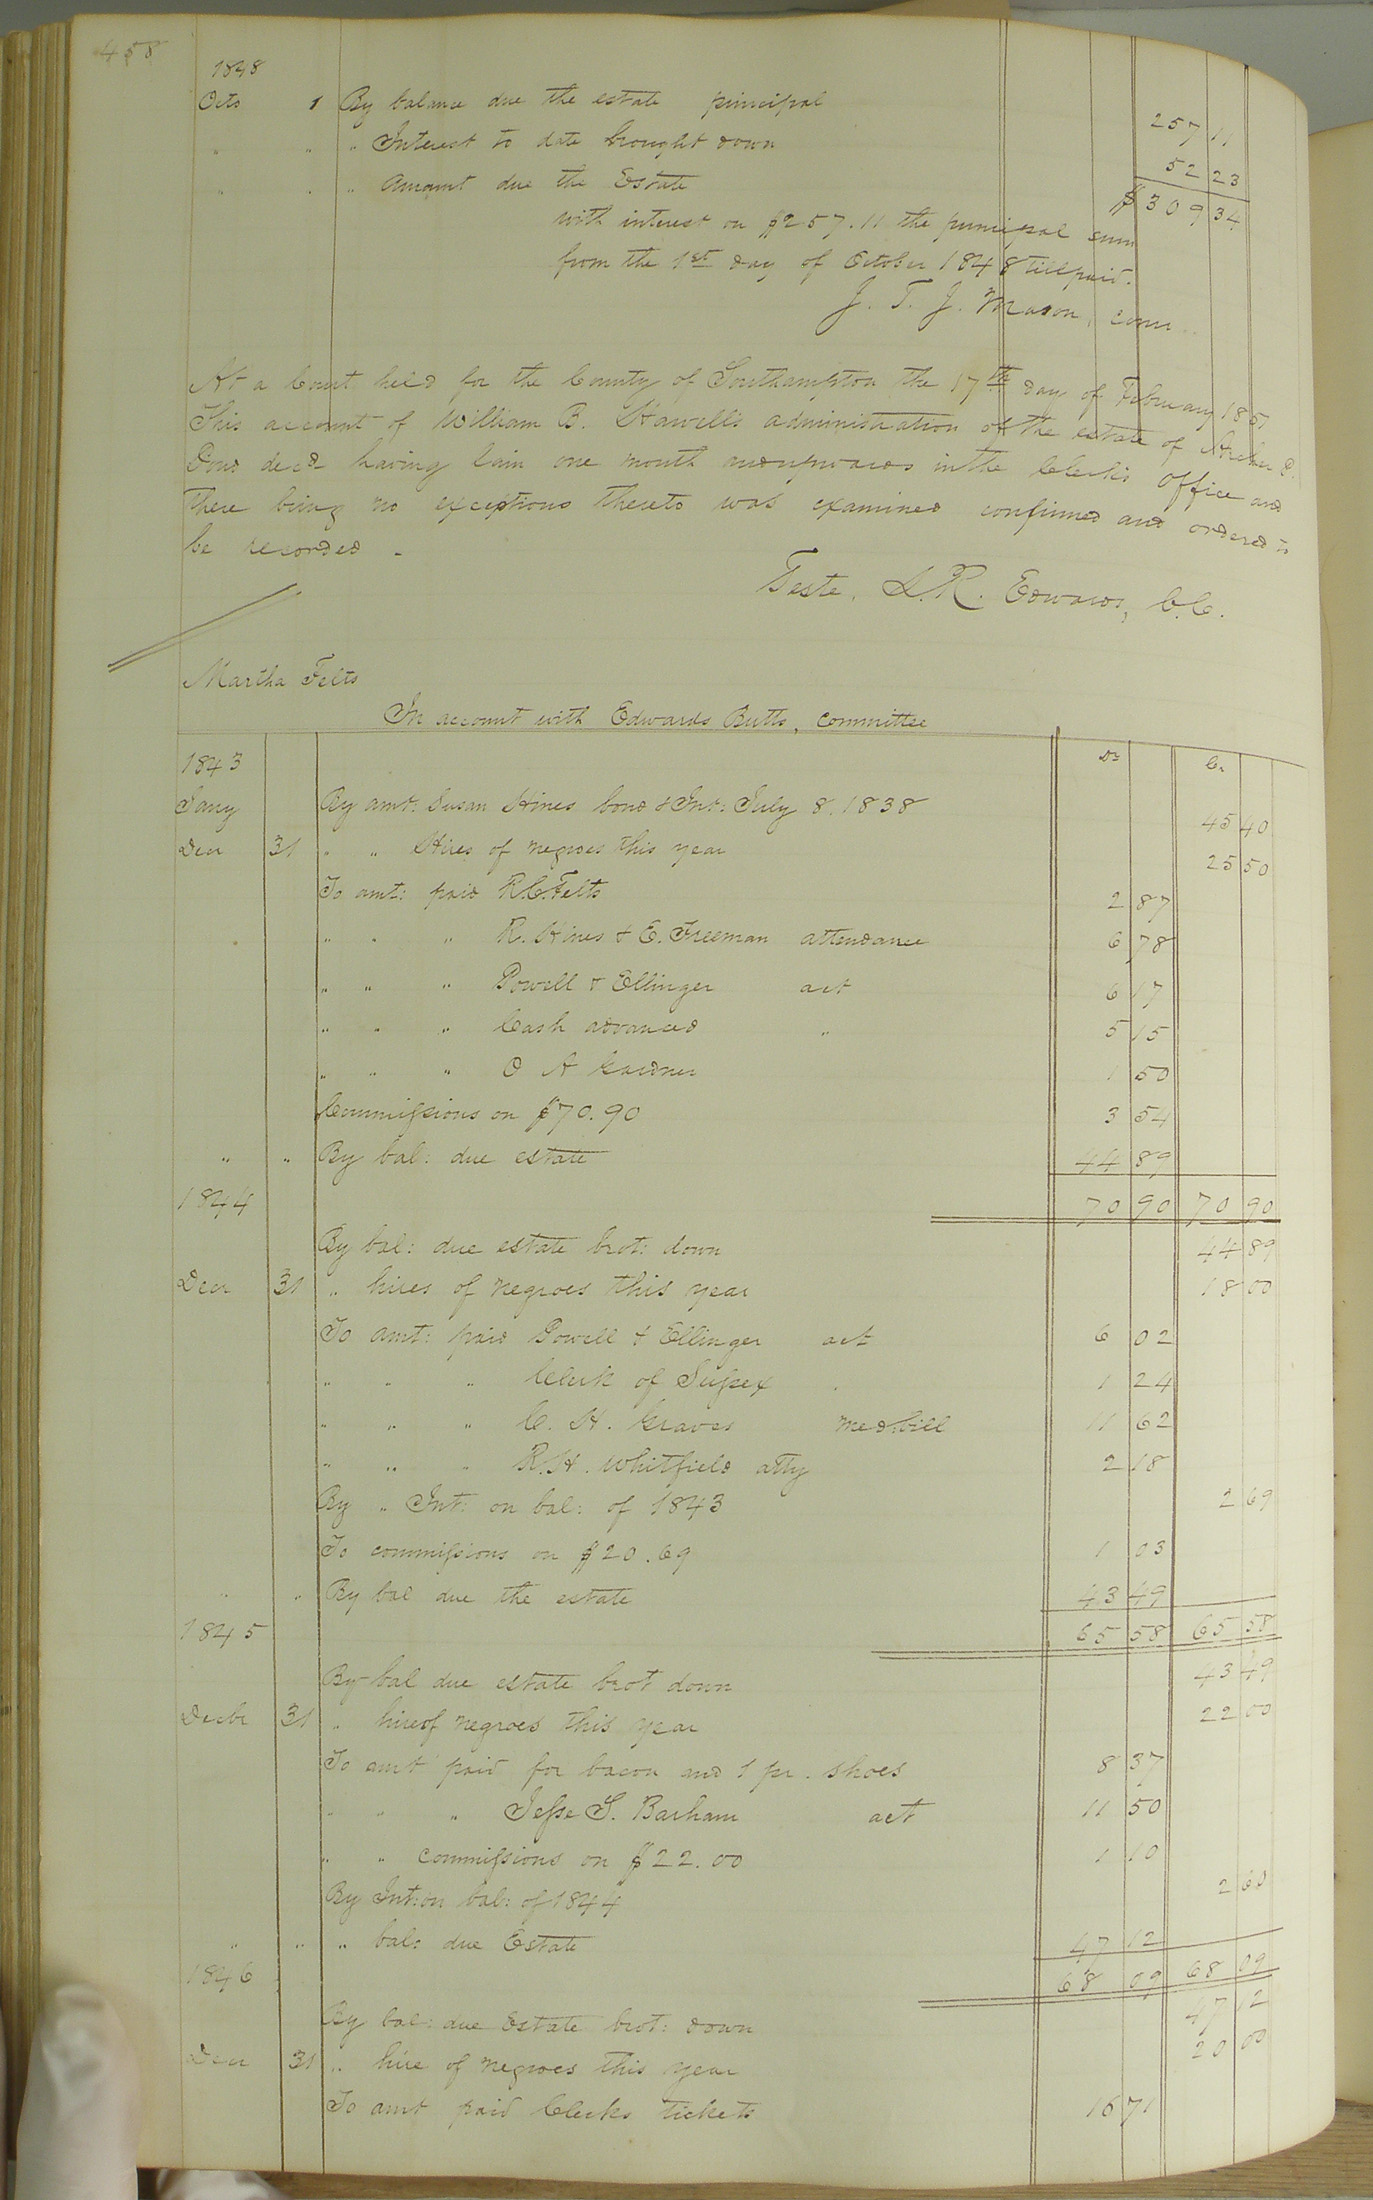 458
1848
Octo 1 By balance due the estate principal 257 11
" " " Interest to date brought down 52 23
" " " Amount due the Estate $309 34
with interest on $257.11 the principal sum
from the 1st day of October 1848 till paid.
J. T. J. Mason, comr
At a Court held for the County of Southampton the 17th day of February 1851
This account of William B. Howell's administration of the estate of Archer P.
Pond decd having lain one month and upwards in the Clerks office and
there being no exceptions thereto was examined confirmed and ordered to
be recorded -
Teste, L. R. Edwards, C.C.
Martha Felts
In account with Edwards Butts, committee
1843 Dr Cr
Jany By amt: Susan Hines bond & Int: July 8. 1838 45 40
Decr 31 " " Hires of negroes this year 25 50
To amt: paid R.C. Felts 2 87
" " " R. Hines & E. Freeman attendance 6 78
" " " Powell & Ellinger act 6 17
" " " Cash advanced " 5 15
" " " O A Gardner 1 50
Commissions on $70.90 3 54
" " By bal: due estate 44 89
1844 70 90 70 90
By bal: due estate brot: down 44 89
Decr 31 " hires of negroes this year 18 00
To amt: paid Powell & Ellinger act 6 02
" " " Clerk of Sussex . 1 24
" " " C. H. Graves med.bill 11 62
" " " R.H. Whitfield atty 2 18
By " Int: on bal: of 1843 2 69
To commissions on $20.69 1 03
" " By bal due the estate 43 49
1845 65 58 65 58
By bal due estate brot down 43 49
Decbr 31 " hire of negroes this year 22 00
To amt paid for bacon and 1 pr. shoes 8 37
" " " Jesse S. Barham act 11 50
" " commissions on $22.00 1 10
By Int: on bal: of 1844 2 60
" " " bal: due Estate 47 12
1846 68 09 68 09
By bal: due Estate brot: down 47 12
Decr 31 " hire of negroes this year 20 00
To amt paid Clerks tickets 16 71